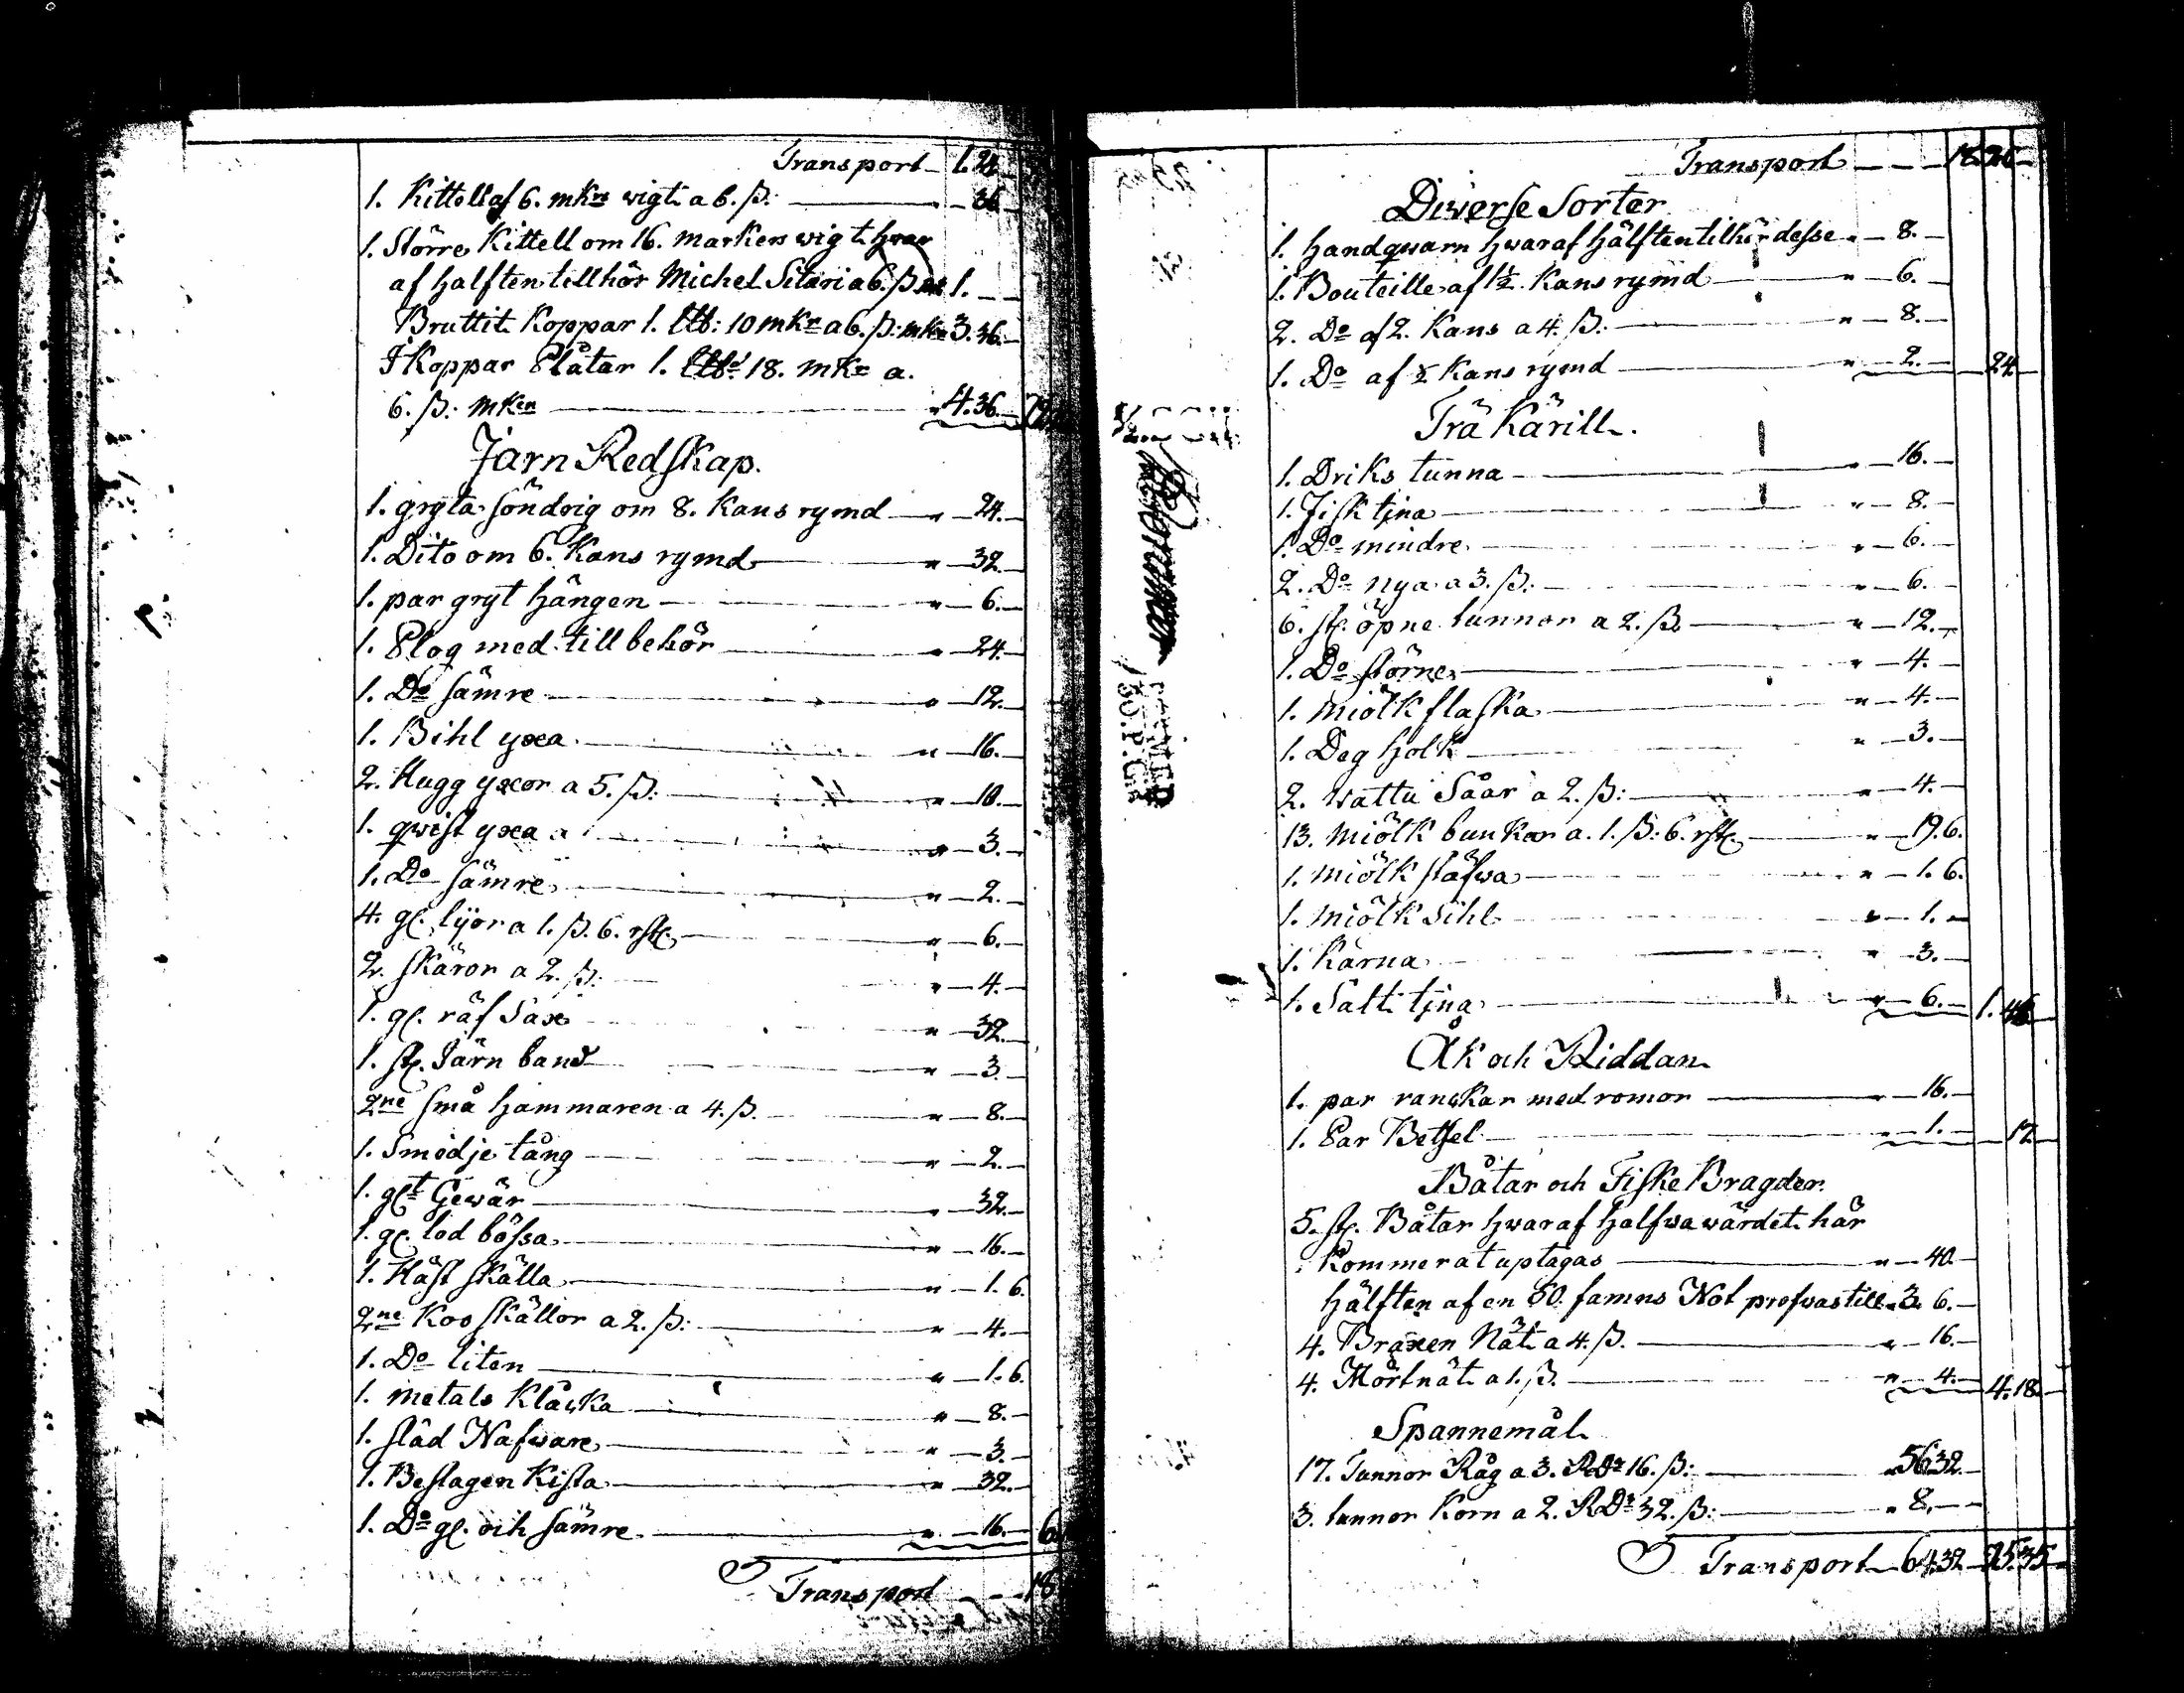 Transport 1. 24.
1. Kittell af 6. mkr wigt a 6. ß: 36
1. Större Kittell om 16. marker wigt hvar
af halften tillhör Michel Sitari a 6. ß 1.
Bruttit Koppar 1. ltb: 10 mkr a 6. ß: mkr 3. 36.
J Koppar Plåtar 1. ltb 18. mkr a.
6. ß: mkr 4. 36.
Järn Redskap.
1. gryta söndrig om 8. Kans rymd " 24.
1. Dito om 6. Kans rymd " 32.
1. par gryt hängen " 6.
1. Plog med tillbehör " 24.
1. Do sämre " 12.
1. Bihl yxa " 16.
2. Hugg yxor a 5. ß: " 10.
1. qwist yxa " 3.
1. Do sämre " 2.
4. gl. lijor a 1. ß. 6. rst. " 6.
2. skäror a 2. ß: " 4.
1. gl. räf Sax " 32.
1. st. Järn band " 3.
2ne små hammaren a 4. ß. " 8.
1. Smedje tång " 2.
1. glt Gewär " 32.
1. gl. lod bössa " 16.
1. Häst skälla " 1. 6.
2ne Koo skällor a 2. ß: " 4.
1. Do liten " 1. 6.
1. metals Klåcka " 8.
1. städ Nafware " 3.
1. Beslagen Kista " 32.
1. Do gl. och sämre " 16. 6
Transport 18
Transport 18.
Diverse Sorter
1. handqwarn hwaraf hälften tilhör desse " 8.
1. Bouteille af 1½ Kans rymd " 6.
2. Do af 2. Kans a 4. ß: " 8.
1. Do af ½ Kans rymd " 2. 24.
Trä Kärill.
1. Driks tunna " 16.
1. Fisk tjna " 8.
1. Do mindre " 6.
2. Do nya a 3. ß: " 6.
6. st. öpne tunnor a 2. ß " 12.
1. Do större " 4.
1. miölk flaska " 4.
1. Deg holk " 3.
2. wattu Såar a 2. ß: " 4.
13. miölk bunkar a. 1. ß: 6. rst. " 19. 6.
1. miölk stäfwa " 1. 6.
1. miölk sihl " 1.
1. Kärna " 3.
1. Salt tjna " 6. 1.
Åk och Riddan
1. par ranckar med romor " 16.
1. Par Betsel " 1. 17.
Båtar och Fiske Bragder
5. st. Båtar hwaraf halfwa wärdet här
Kommer at uptagas " 40.
hälften af en 50. famns Not profwas till " 3. 6.
4. Braxen Nät a 4. ß. " 16.
4. Mörtnät a 1. ß. " 4. 4. 18.
Spannemål
17. Tunnor Råg a 3. RDr 16. ß: " 56 32.
3. tunnor Korn a 2. RDr 32. ß: " 8.
Transport 64 32 25. 35